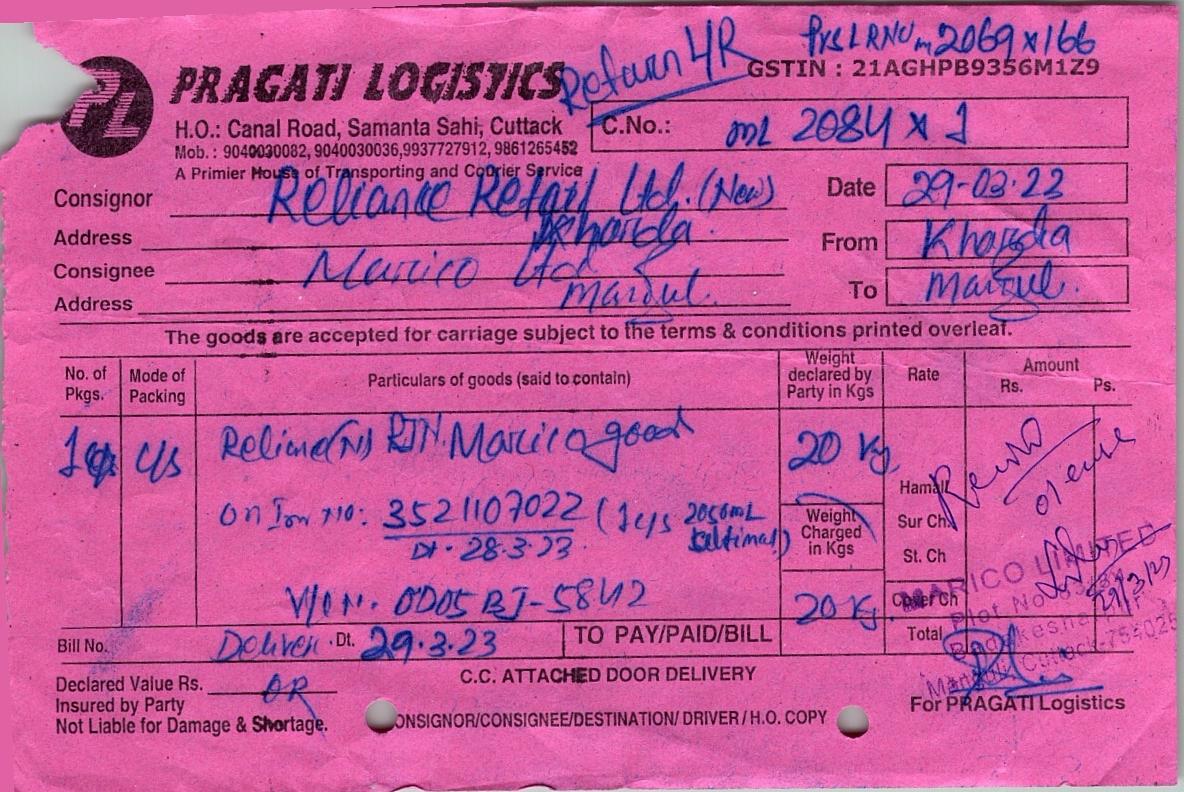 Return 4R
2069 x 166
PL
PRAGATI LOGISTICS
GSTIN : 21AGHPB9356M1Z9
H.O.: Canal Road, Samanta Sahi, Cuttack
C.No.: ML 2084 x 1
Mob. : 9040030082, 9040030036,9937727912, 9861265452
A Primier House of Transporting and Courier Service
Consignor Reliance Retail Ltd. (New)
Date 29-03-23
Address Khorda.
From Khorda
Consignee Marico Ltd
Address
To
The goods are accepted for carriage subject to the terms & conditions printed overleaf.
No. of Pkgs.
Mode of Packing
Particulars of goods (said to contain)
Weight declared by Party in Kgs
Rate
Amount
Rs. Ps.
c/s
Reliance(N) RTN. Marico good
20 Kg.
Hamali
3521107022 (1c/s
Dt. 28.3.23
Weight Charged in Kgs
Sur Ch.
St. Ch
OD05 BJ-5842
20 Kg.
Cover Ch
MARICO LIMITED
Plot No
29/3/23
Cuttack-754025
Bill No. Dt. 29.3.23
TO PAY/PAID/BILL
Total
Declared Value Rs. OR
C.C. ATTACHED DOOR DELIVERY
Insured by Party
Not Liable for Damage & Shortage.
CONSIGNOR/CONSIGNEE/DESTINATION/ DRIVER / H.O. COPY
For PRAGATI Logistics